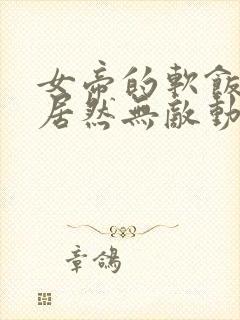 女帝的軟飯
居然無敵動
章鴿